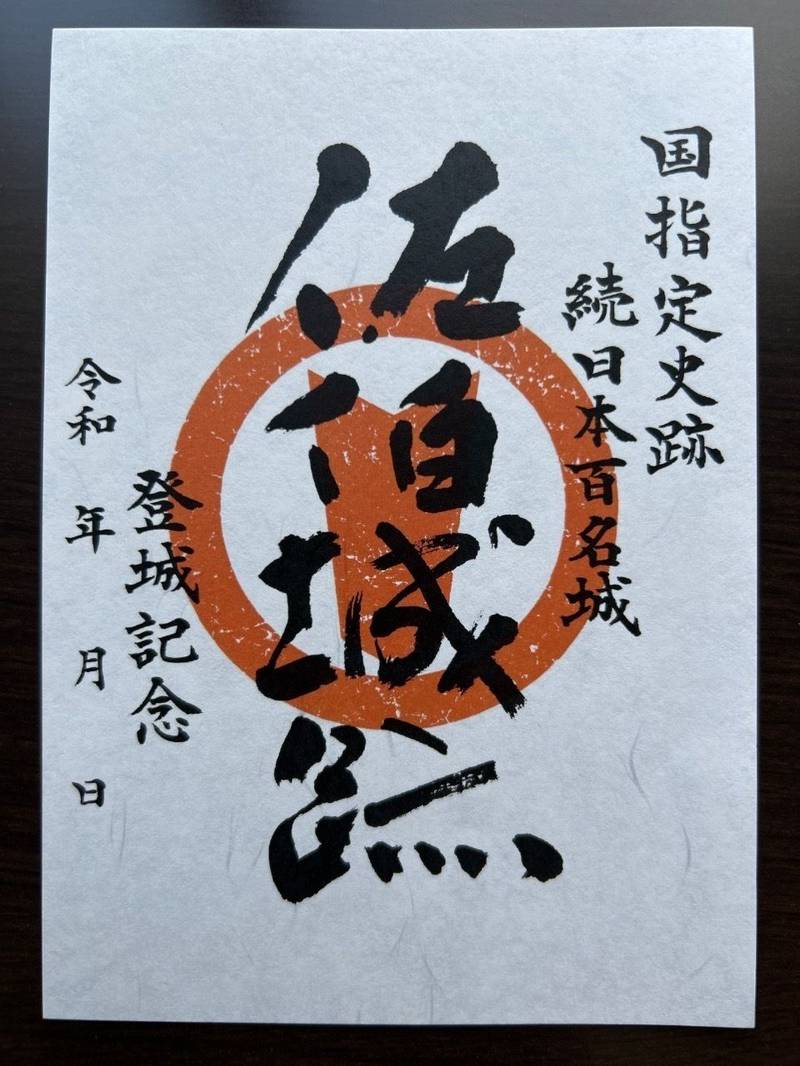 国指定史跡
続日本百名城
佐伯城跡
登城記念
令和 年 月 日